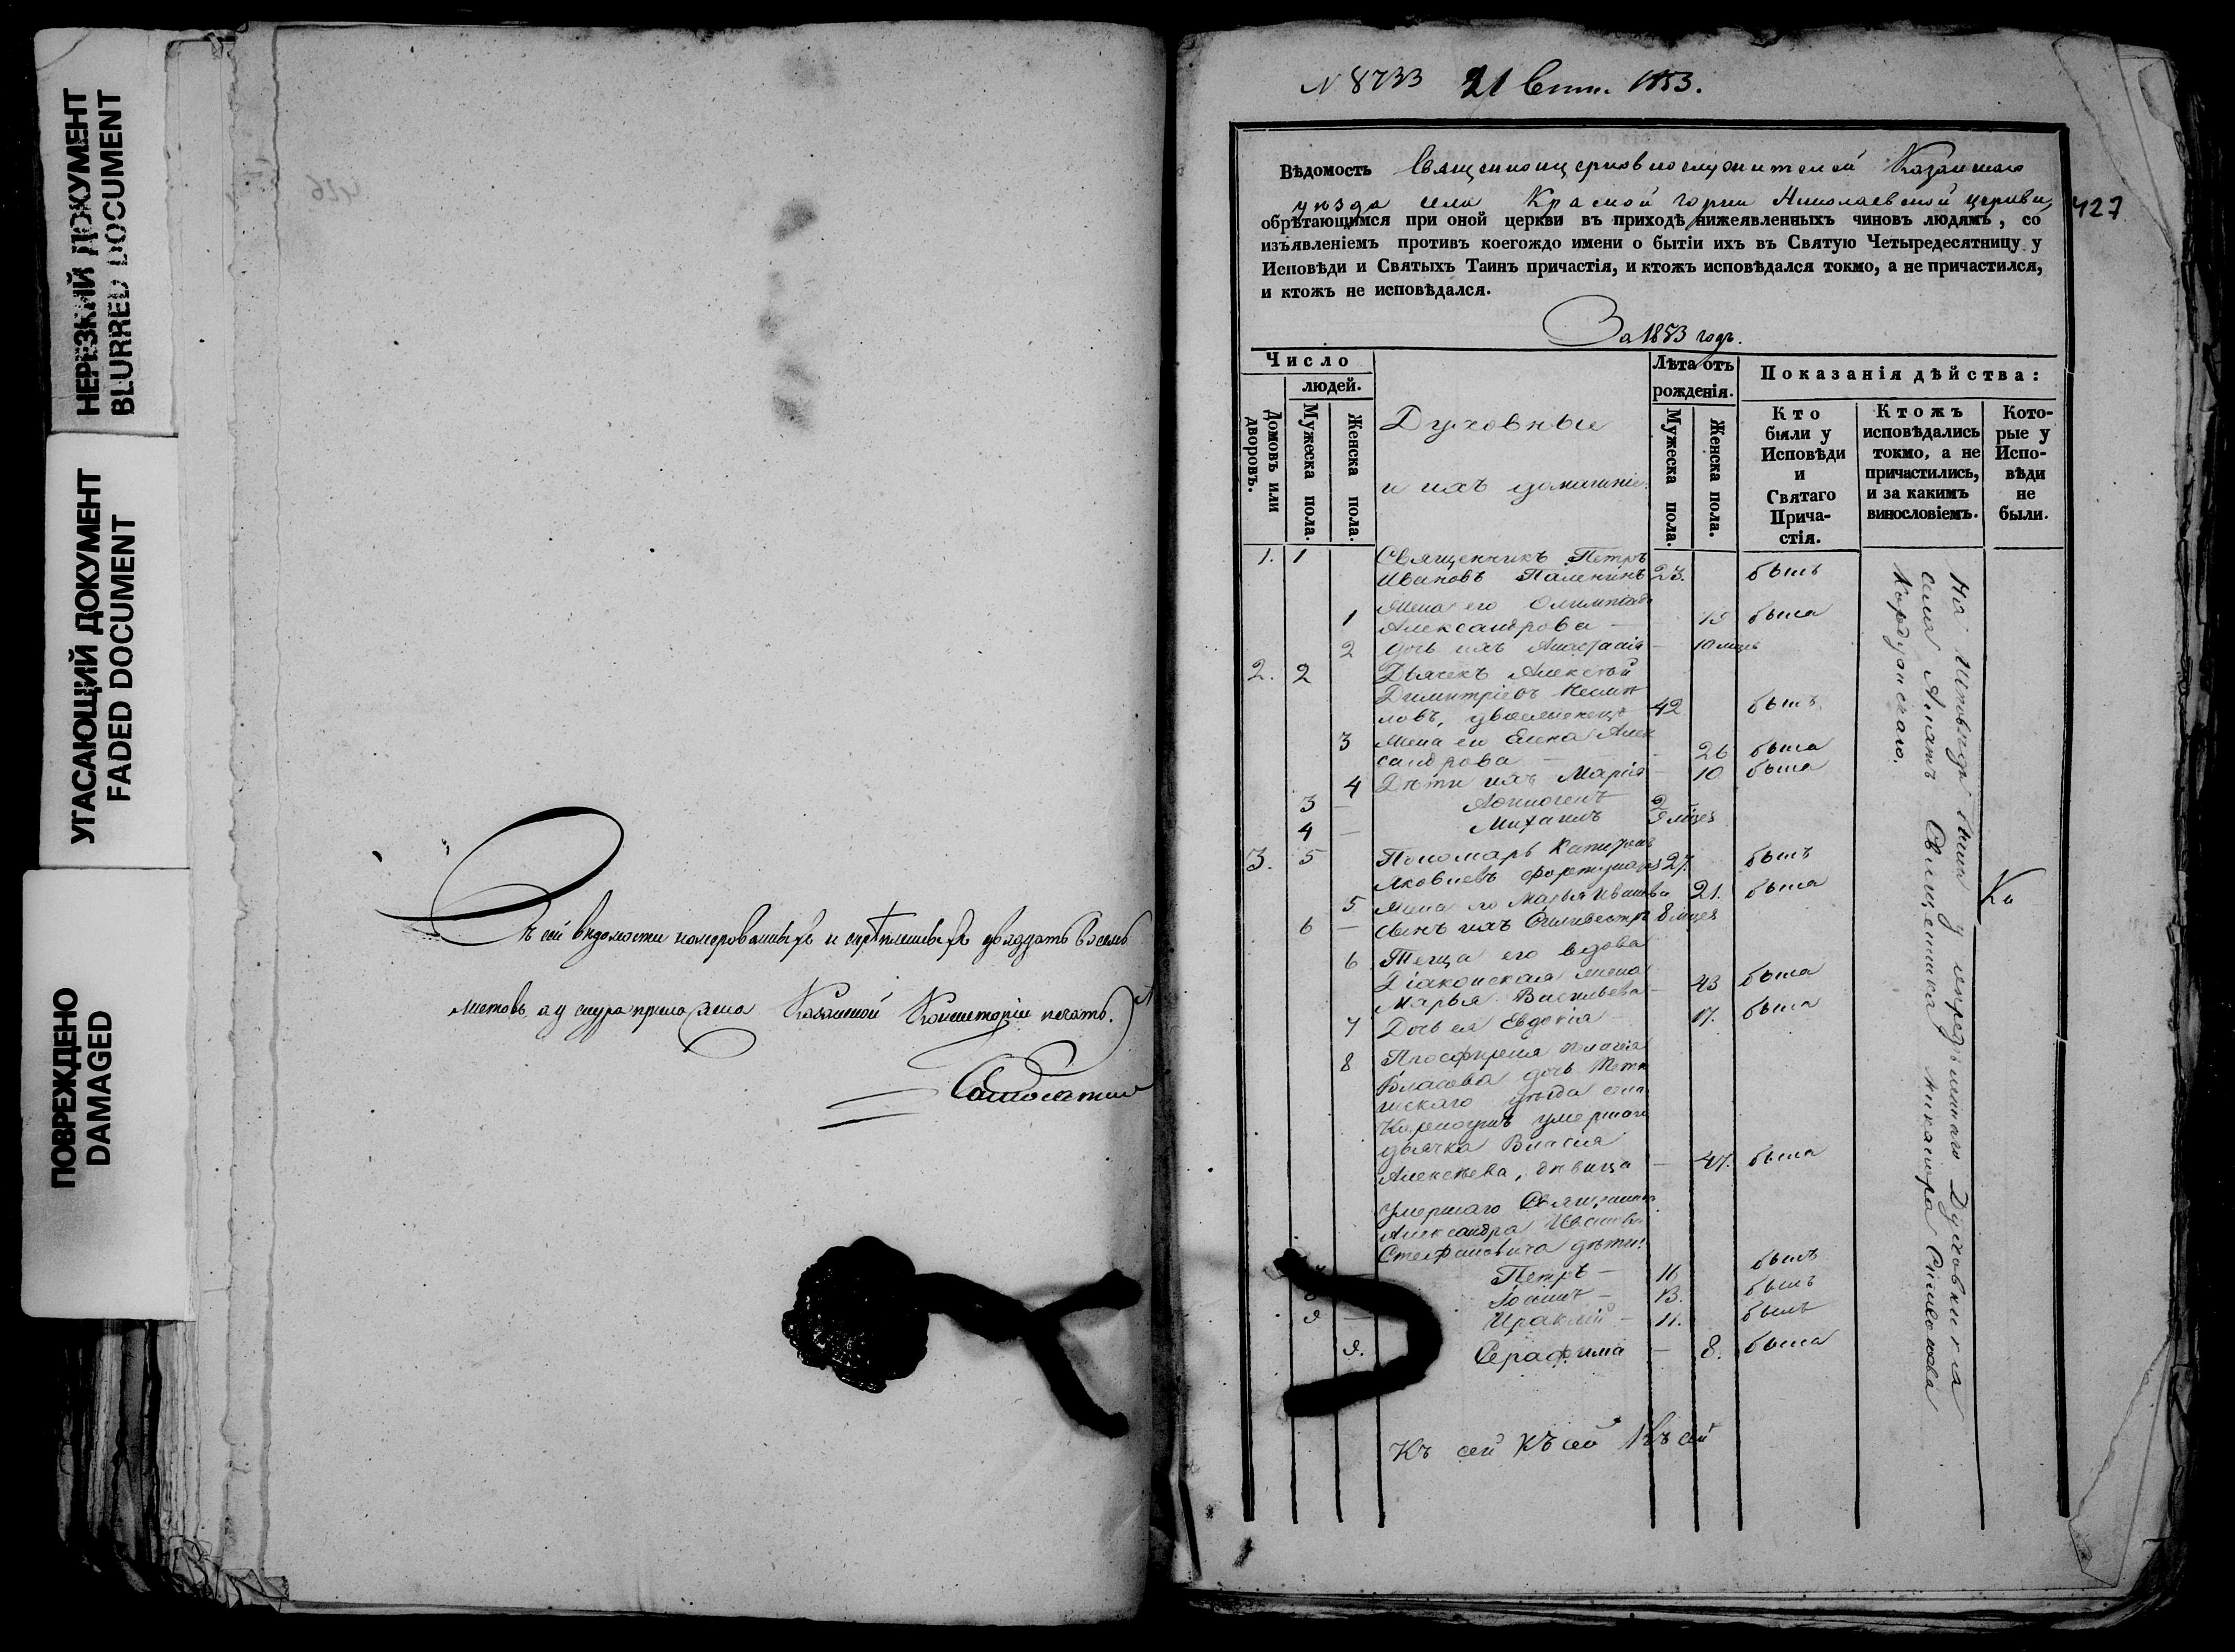 НЕРЕЗКИЙ ДОКУМЕНТ
BLURRED DOCUMENT
УГАСАЮЩИЙ ДОКУМЕНТ
FADED DOCUMENT
ПОВРЕЖДЕНО
DAMAGED
въ сей вѣдомости номерованныхъ и скрѣпленныхъ двадцать восемь
листовъ, а у снура приложена Казанской Консисторіи печать.
N 8733 21 Сент. 1853.
427
Вѣдомость Священноцерковнослужителей Казанскаго
уѣзда села Красной горки Николаевской церкви,
обрѣтающимся при оной церкви въ приходѣ нижеявленныхъ чиновъ людямъ, со
изъявленіемъ противъ коегождо имени о бытіи ихъ въ Святую Четыредесятницу у
Исповѣди и Святыхъ Таинъ причастія, и ктожъ исповѣдался токмо, а не причастился,
и ктожъ не исповѣдался.
За 1853 годъ.
Число
людей.
Домовъ или дворовъ.
Мужеска пола.
Женска пола.
Духовные
и ихъ домашніе.
Лѣта отъ рожденія.
Мужеска пола.
Женска пола.
Показанія дѣйства:
Кто были у Исповѣди и Святаго Прича-стія.
Ктожъ исповѣдались токмо, а не причастились, и за какимъ винословіемъ.
Кото-рые у Испо-вѣди не были.
1. 1 Священникъ Петръ
Ивановъ Паленинъ 23. былъ
Жена его Олимпіада
1 Александрова — 19 была
2 дочь ихъ Анастасія — 10 мцъ
2. 2 Дьячекъ Алексѣй
Димитріевъ
ловъ, двоеженецъ 42 былъ
3 Жена его Елена Алек
сандрова — 26 была
4 Дѣти ихъ Марія — 10 была
3 — 2
4 — Михаилъ 9 мцев
3. 5 Пономарь Капитонъ
Яковлевъ 27. былъ
5 Жена его Марья Иванова 21. была
6 — сынъ ихъ Сильвестръ 8 мцев
6 Теща его вдова
Діаконская жена
Марья Васильева — 43 была
7 Дочь ея Евдокія — 17. была
8 Просфирня Пелагія
Власова дочь
уѣзда села
умершаго
дьячка Власія
Алексѣева, дѣвица — 47. была
умершаго Священника
Александра Иванова
Стефановича дѣти:
Петръ — 16 былъ
— 13. былъ
9 — Ираклій — 11. былъ
9. Серафима — 8. была
На Исповѣди были у опредѣленнаго Духовника
села Апать Священника Никанора
Кордуанскаго.
Ко
Къ сей Къ сей Къ сей